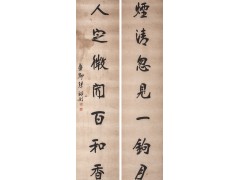 煙清忽見一鉤月
人定微聞百和香